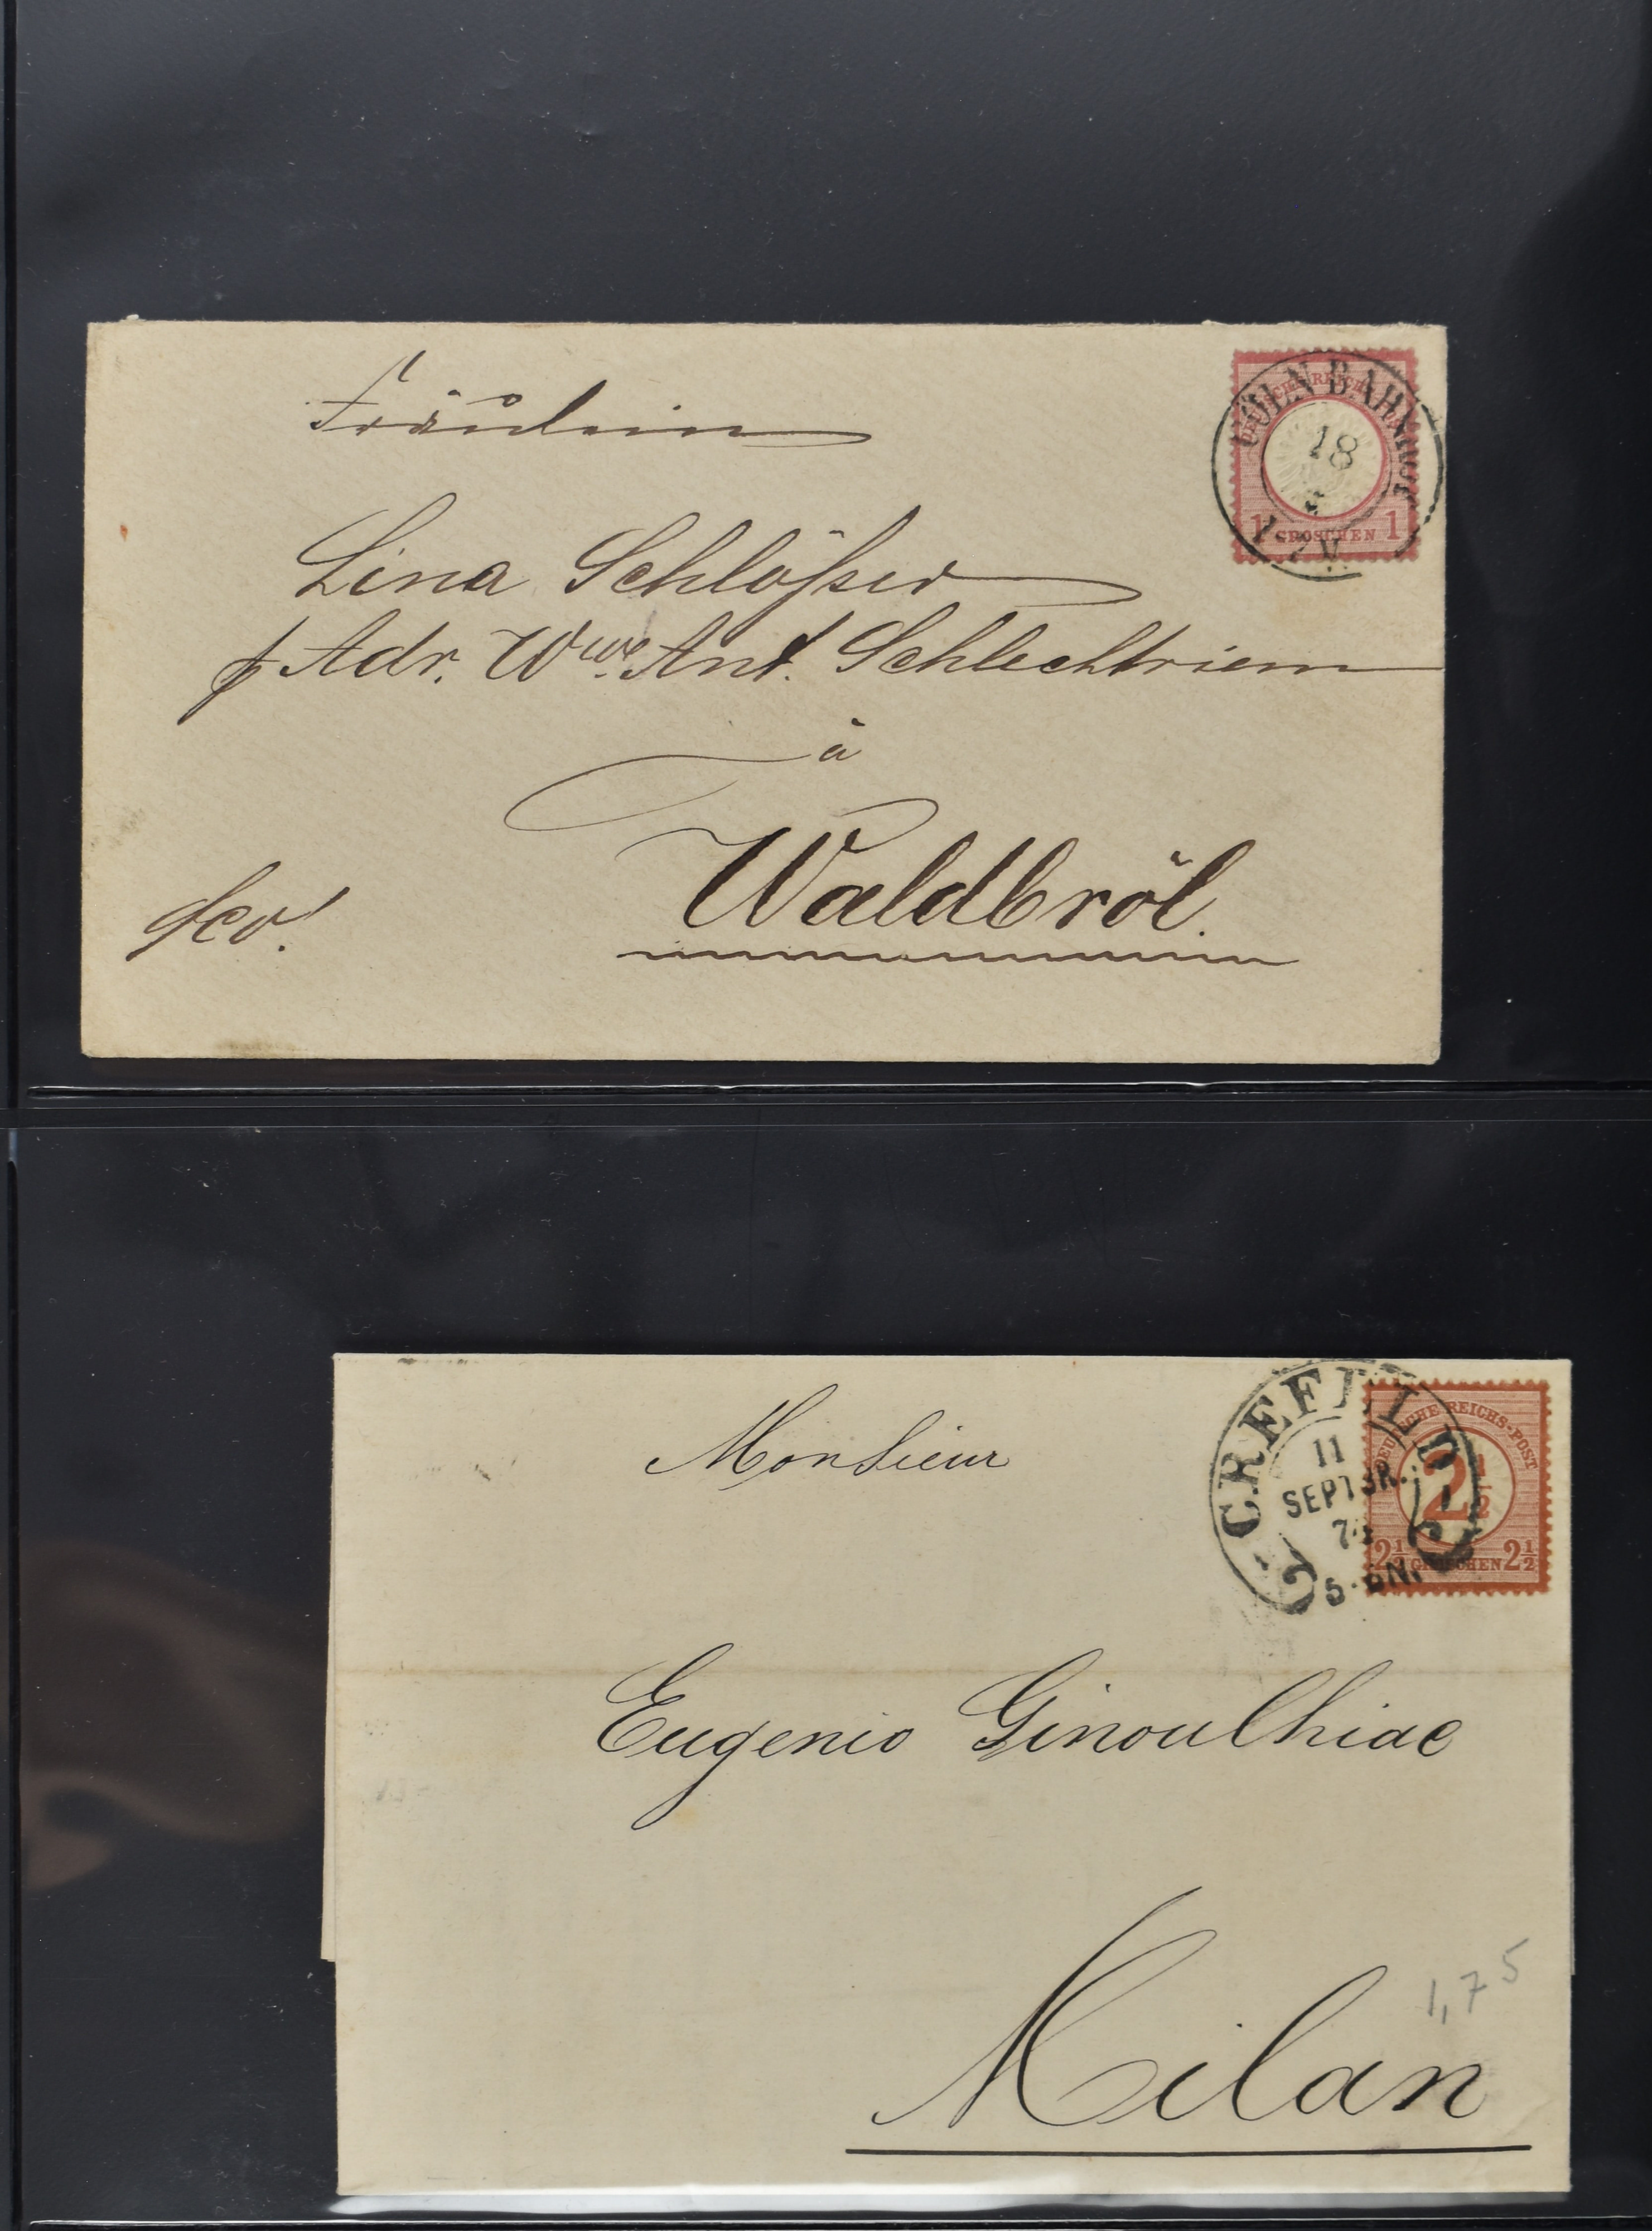 Fräulein
Lina Schlößer
p Adr. Wwe. Ant. Schlechtriem
à
Waldbröl.
fco!
CÖLN BAHNHOF
18
1-2 N.
DEUTSCHE REICHS-POST
1 GROSCHEN 1
Monsieur
CREFELD
11
SEPTBR.
5-6N.
DEUTSCHE REICHS-POST
2½
2½ GROSCHEN 2½
Eugenio Ginoulhiac
1,75
Milan